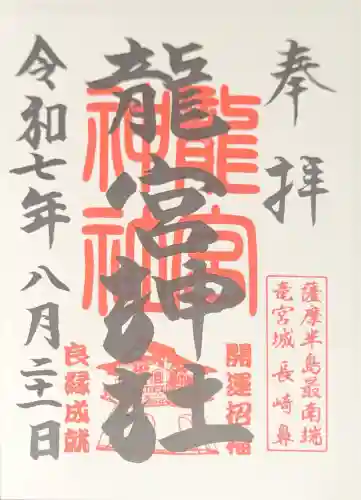 奉拝
薩摩半島最南端
竜宮城 長崎鼻
龍宮神社
龍宮神社
開運招福
良縁成就
令和七年八月二十一日